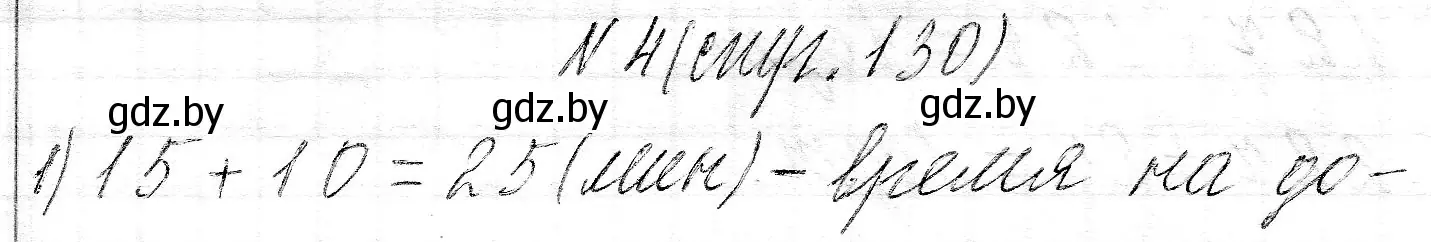 № 4 (стр. 130)
gdz.by gdz.by gdz.by
1) 15 + 10 = 25 (мин) – время на до-